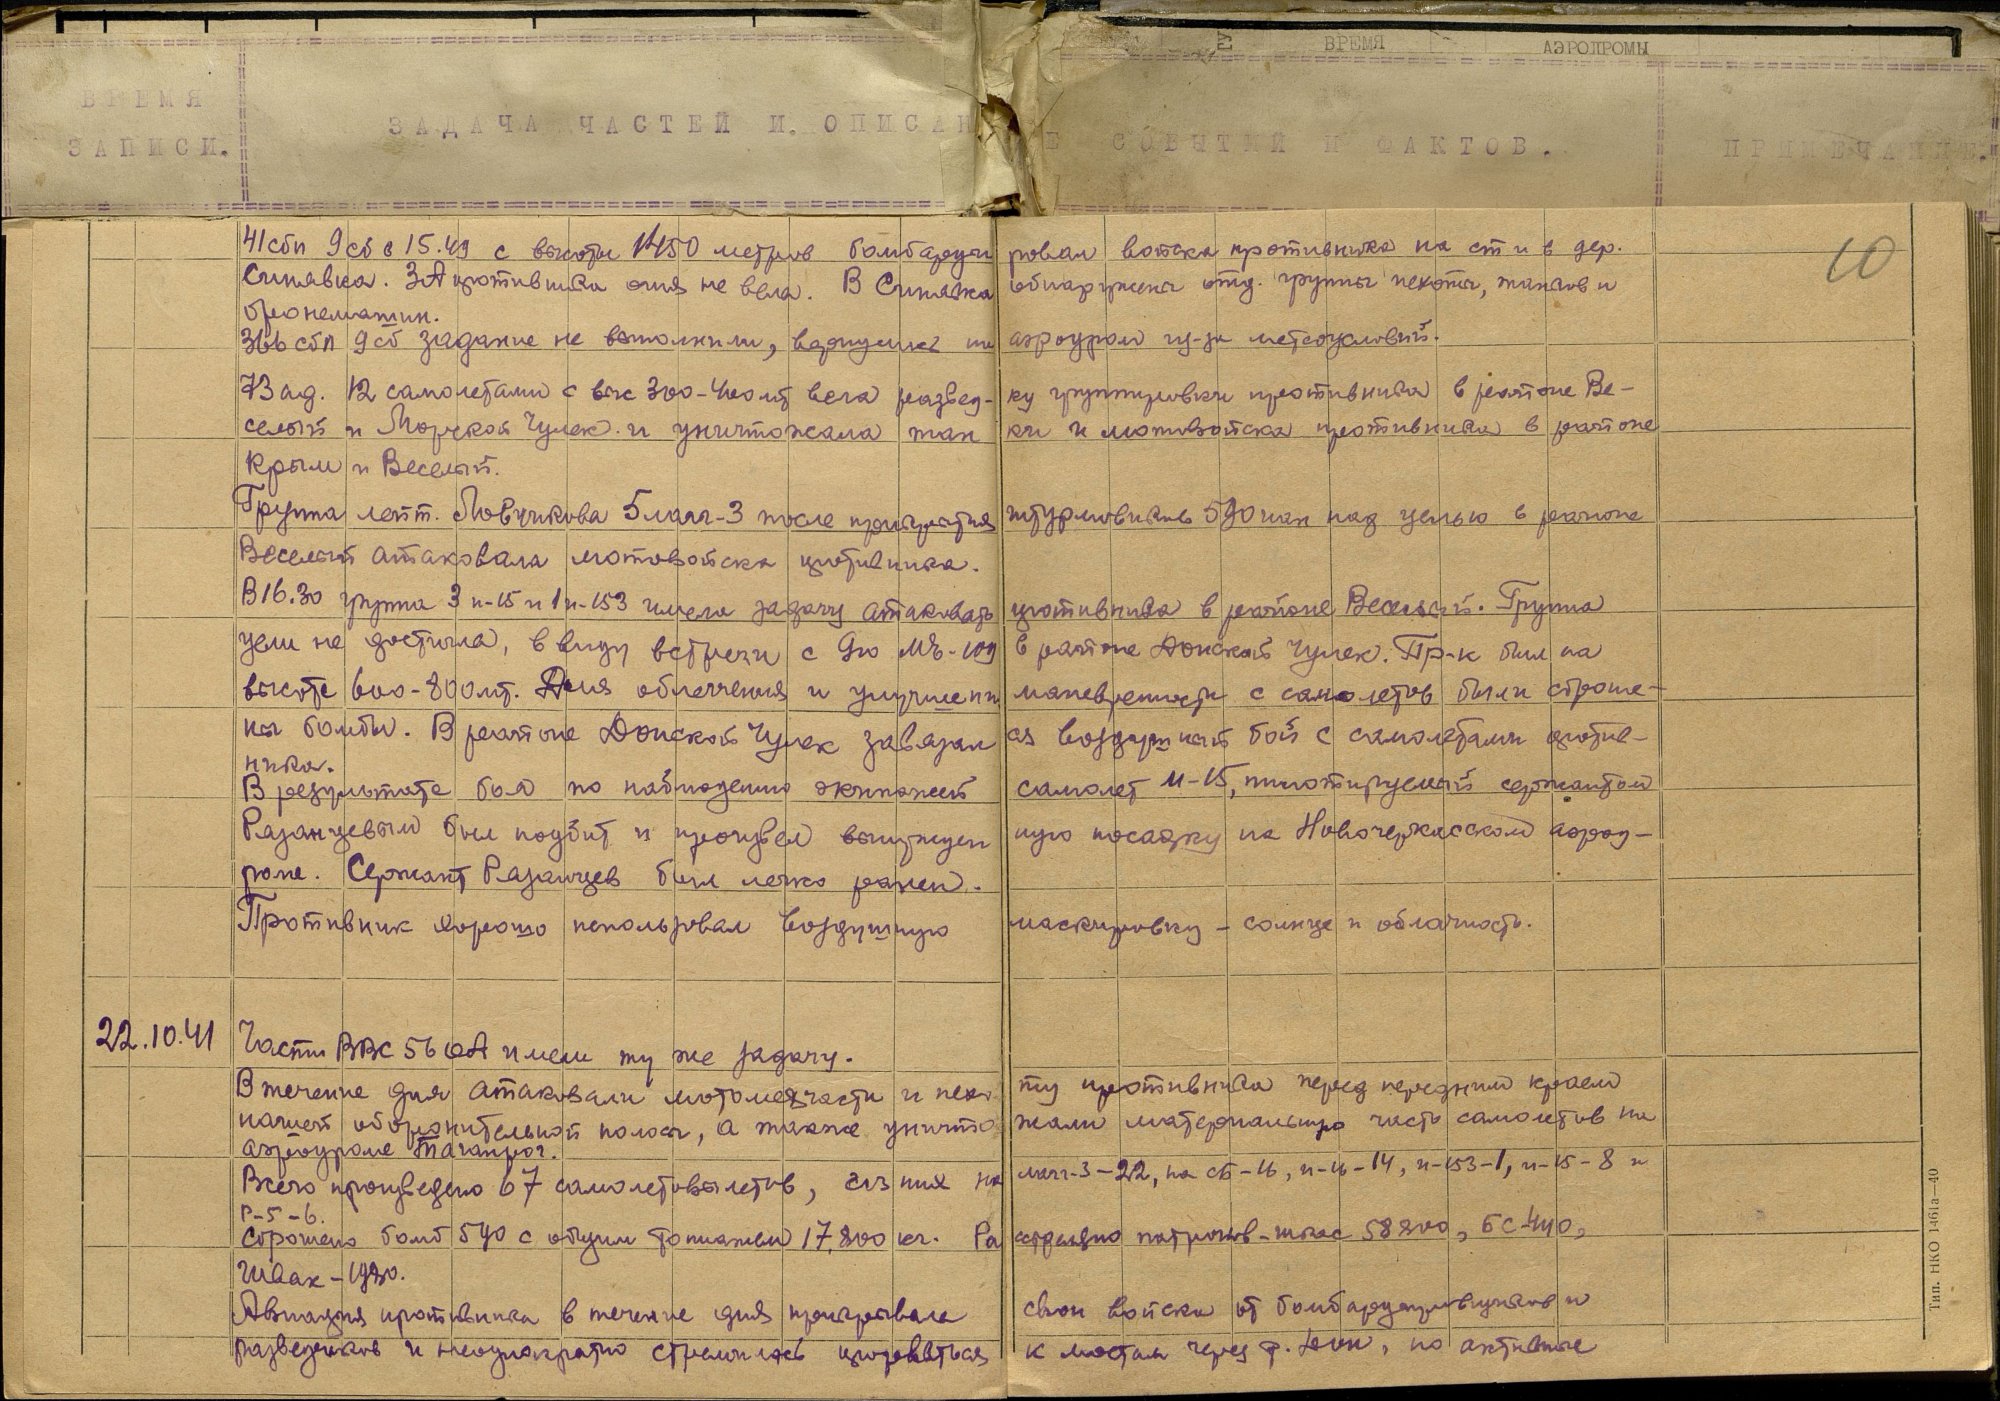 ВРЕМЯ АЭРОДРОМЫ
ВРЕМЯ ЗАПИСИ.
ЗАДАЧА ЧАСТЕЙ И ОПИСАНИЕ СОБЫТИЙ И ФАКТОВ.
ПРИМЕЧАНИЕ.
10
41 сбп 9 сб в 15.49 с высоты 1450 метров бомбардировал войска противника на ст и в дер.
Синявка. ЗА противника огня не вела. В Синявка обнаружены отд. группы пехоты, танков и
бронемашин.
366 сбп 9 сб задание не выполнили, вернулись на аэродром из-за метеоусловий.
73 ад. 12 самолетами с выс 300-400 мт вела разведку группировки противника в районе Ве-
селый и Морской Чулек и уничтожала танки и мотовойска противника в районе
Крым и Веселый.
Группа лейт. Ловчикова 5 лагг-3 после прикрытия штурмовиков 590 иап над целью в районе
Веселый атаковала мотовойска противника.
В 16.30 группа 3 и-15 и 1 и-153 имела задачу атаковать противника в районе Веселый. Группа
цели не достигла, ввиду встречи с 9ю МЕ-109 в районе Донской Чулек. Пр-к был на
высоте 600-800 мт. Для облегчения и улучшени маневренности с самолетов были сброше-
ны бомбы. В районе Донской Чулек завязался воздушный бой с самолетами против-
ника.
В результате боя по наблюдению экипажей самолет И-15, пилотируемый сержантом
Разанцевым был подбит и произвел вынужденную посадку на Новочеркасском аэрод-
роме. Сержант Разанцев был легко ранен.
Противник хорошо использовал воздушную маскировку - солнце и облачность.
22.10.41 Части ВВС 56 ОА имели ту же задачу.
В течение дня атаковали мотомехчасти и пехоту противника перед передним краем
нашей оборонительной полосы, а также уничтожали материальную часть самолетов на
аэродроме Таганрог.
Всего произведено 67 самолетовылетов, из них на лагг-3-22, на СБ-16, и-16-14, и-153-1, и-15-8 и
Р-5-6.
Сброшено бомб 590 с общим тоннажем 17.800 кг. Расстреляно патронов-шкас 58800, БС-440,
Швак-1930.
Авиация противника в течение дня прикрывала свои войска от бомбардировщиков и
разведчиков и неоднократно стремилась прорваться к мостам через р. Дон, но активные
Тип. НКО 1461а—40